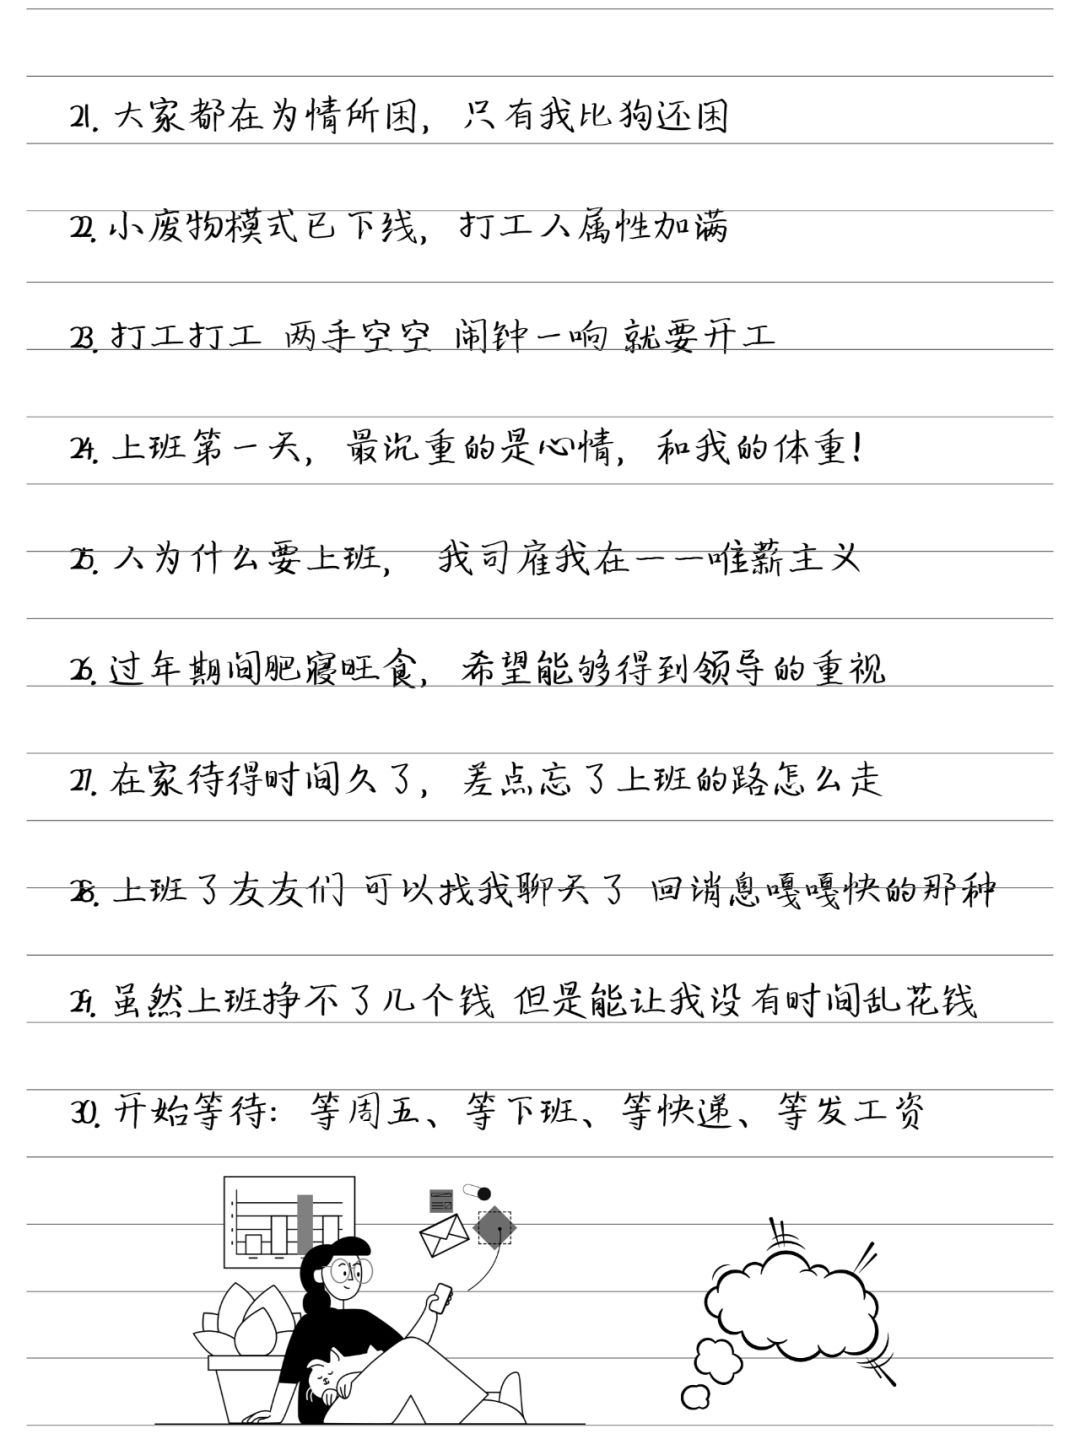 21. 大家都在为情所困，只有我比狗还困
22. 小废物模式已下线，打工人属性加满
23. 打工打工 两手空空 闹钟一响 就要开工
24. 上班第一天，最沉重的是心情，和我的体重！
25. 人为什么要上班， 我司雇我在一一唯薪主义
26. 过年期间肥寝旺食，希望能够得到领导的重视
27. 在家待得时间久了，差点忘了上班的路怎么走
28. 上班了友友们 可以找我聊天了 回消息嘎嘎快的那种
29. 虽然上班挣不了几个钱 但是能让我没有时间乱花钱
30. 开始等待：等周五、等下班、等快递、等发工资